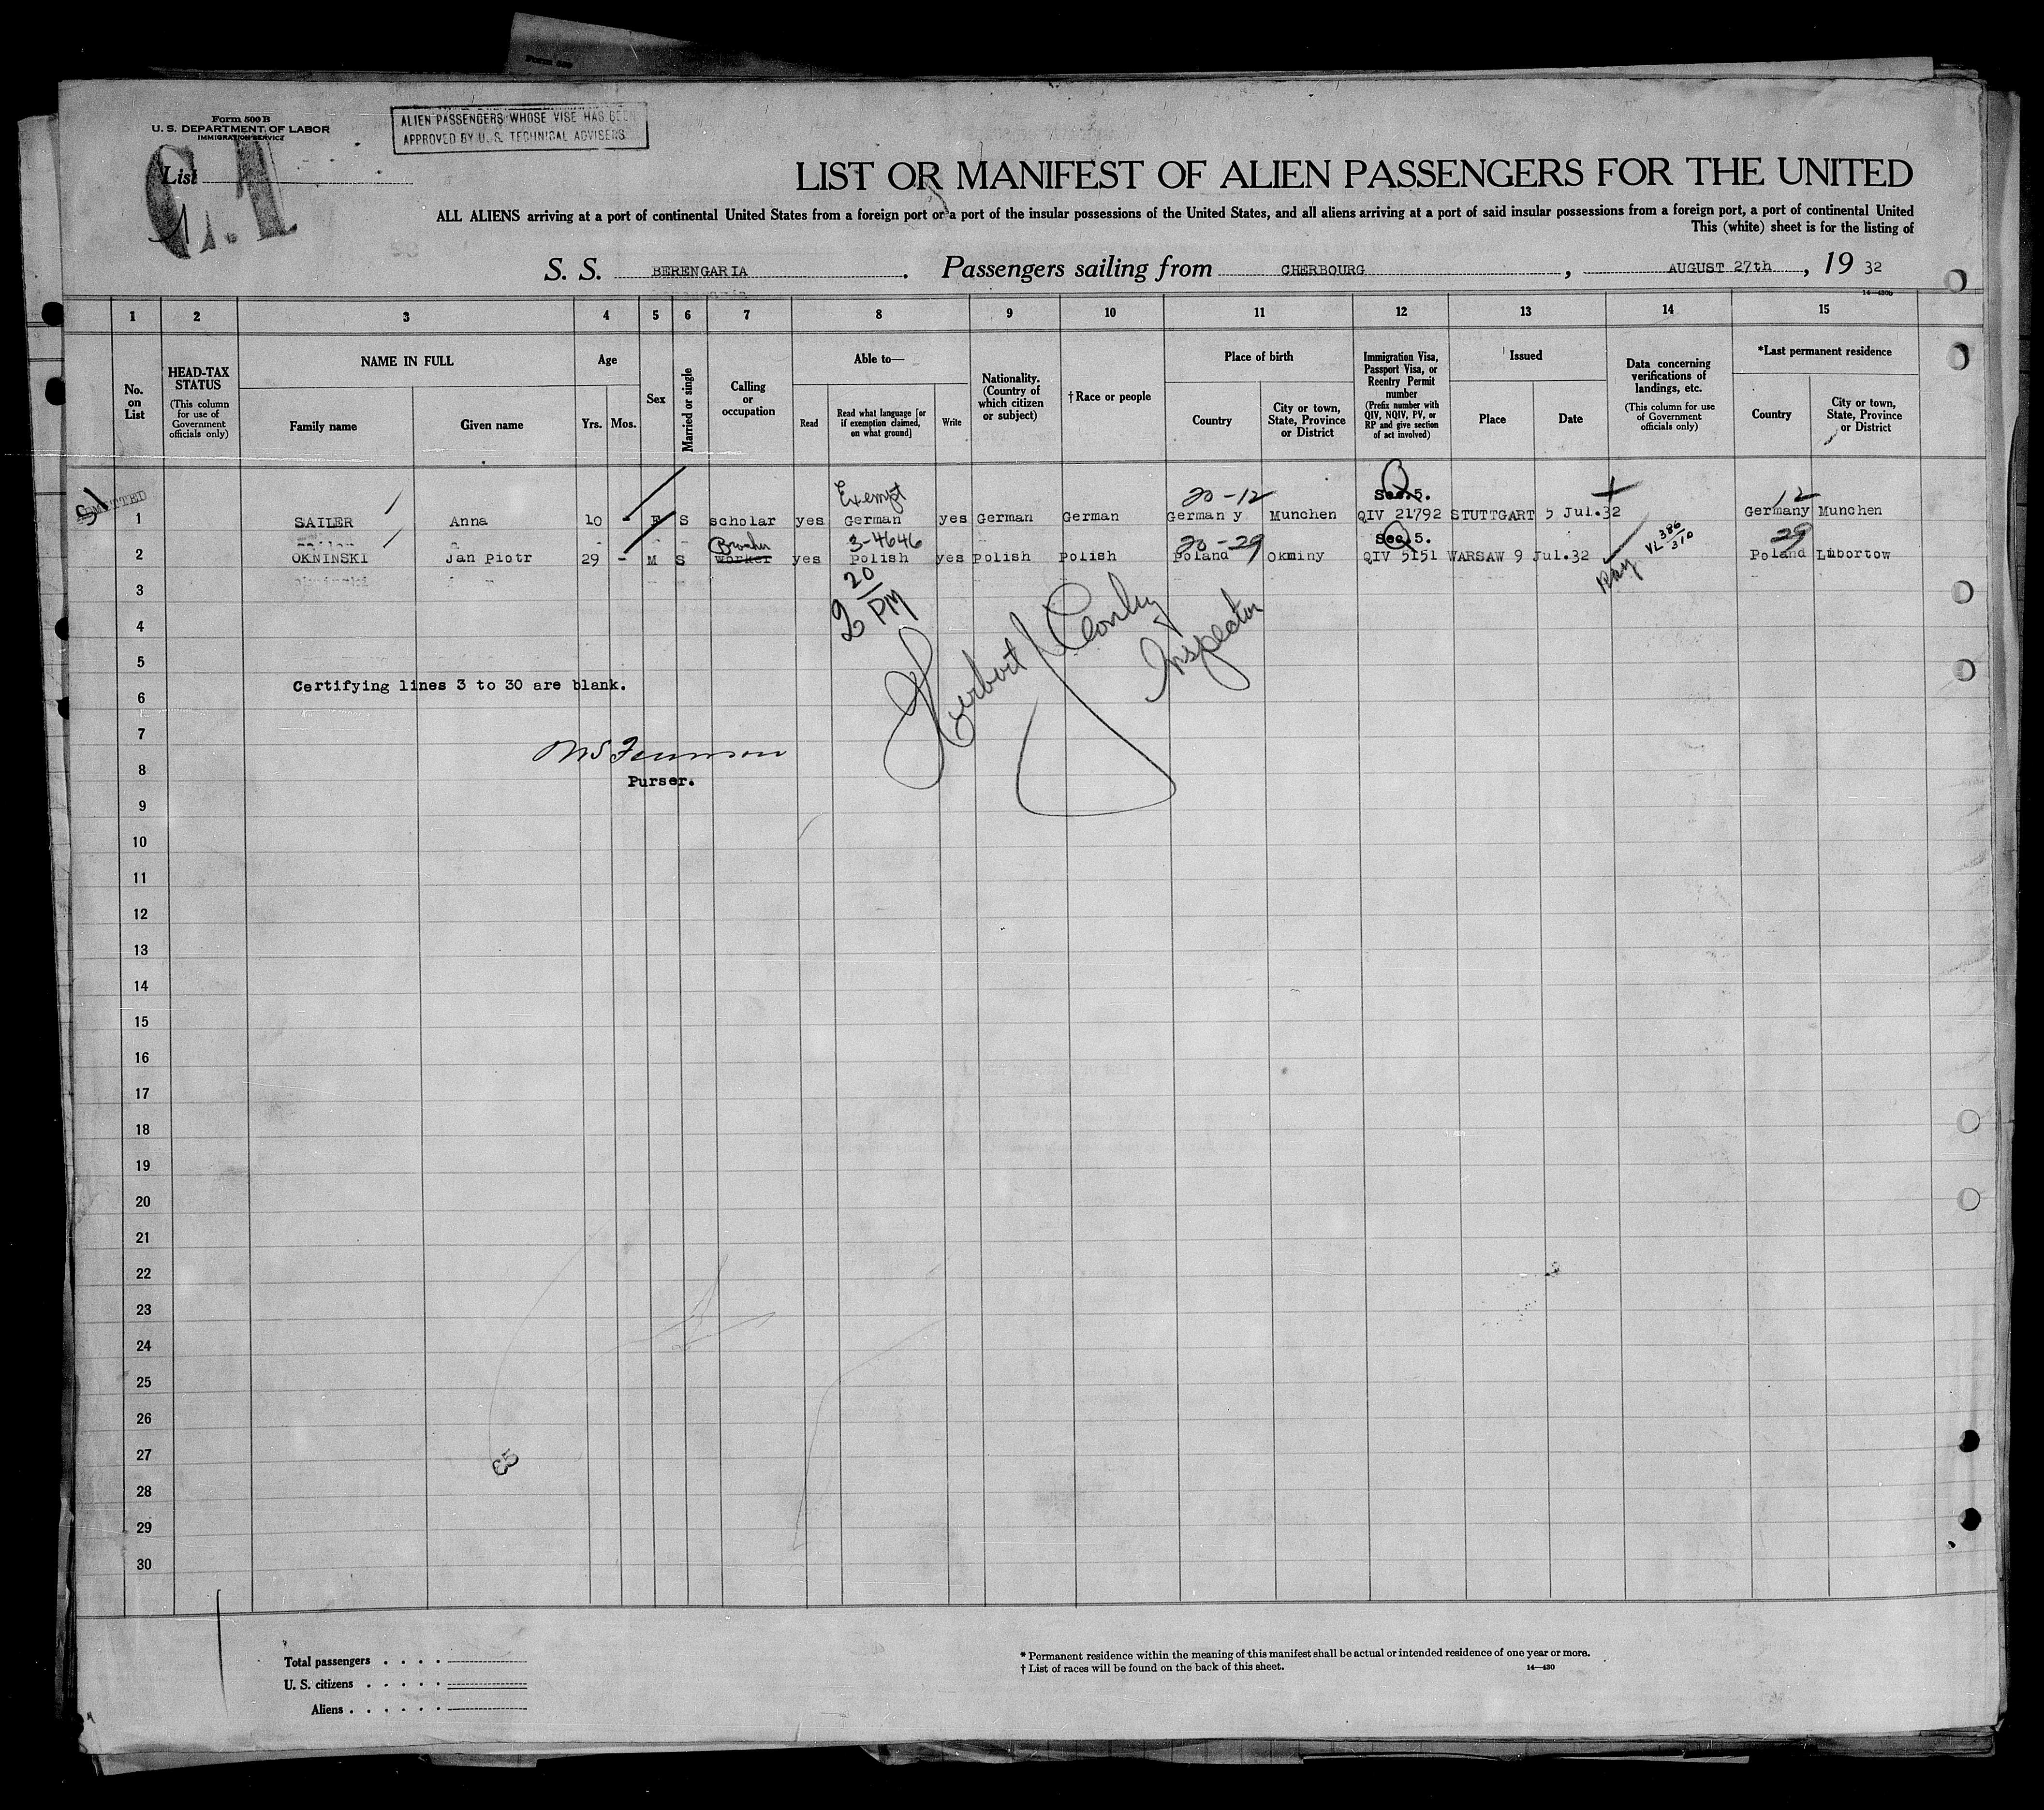 Form 500 B
U. S. DEPARTMENT OF LABOR
IMMIGRATION SERVICE
ALIEN PASSENGERS WHOSE VISE HAS BEEN
APPROVED BY U. S. TECHNICAL ADVISERS
List
C.1
1
LIST OR MANIFEST OF ALIEN PASSENGERS FOR THE UNITED
ALL ALIENS arriving at a port of continental United States from a foreign port or a port of the insular possessions of the United States, and all aliens arriving at a port of said insular possessions from a foreign port, a port of continental United
This (white) sheet is for the listing of
S. S. BERENGARIA. Passengers sailing from CHERBOURG, AUGUST 27th, 19 32
14—430b
1 2 3 4 5 6 7 8 9 10 11 12 13 14 15
No. on List
HEAD-TAX STATUS (This column for use of Government officials only)
NAME IN FULL
Family name Given name
Age
Yrs. Mos.
Sex
Married or single
Calling or occupation
Able to—
Read
Read what language [or if exemption claimed, on what ground]
Write
Nationality. (Country of which citizen or subject)
†Race or people
Place of birth
Country
City or town, State, Province or District
Immigration Visa, Passport Visa, or Reentry Permit number (Prefix number with QIV, NQIV, PV, or RP and give section of act involved)
Issued
Place Date
Data concerning verifications of landings, etc. (This column for use of Government officials only)
*Last permanent residence
Country
City or town, State, Province or District
Exempt 20-12 Sec.5. 12
1 SAILER Anna 10 - F S scholar yes German yes German German Germany Munchen QIV 21792 STUTTGART 5 Jul.32 Germany Munchen
3-4646 20-29 Sec.5. VL 386/310 29
2 OKNINSKI Jan Piotr 29 - M S worker yes Polish yes Polish Polish Poland Okminy QIV 5151 WARSAW 9 Jul.32 Poland Lubortow
2 20/PM
3
4
5
Certifying lines 3 to 30 are blank.
6
Herbert Conley
Inspector
7
8
Purser.
9
10
11
12
13
14
15
16
17
18
19
20
21
22
23
24
25
26
27
28
29
30
Total passengers
U. S. citizens
Aliens
* Permanent residence within the meaning of this manifest shall be actual or intended residence of one year or more.
† List of races will be found on the back of this sheet.
14—430